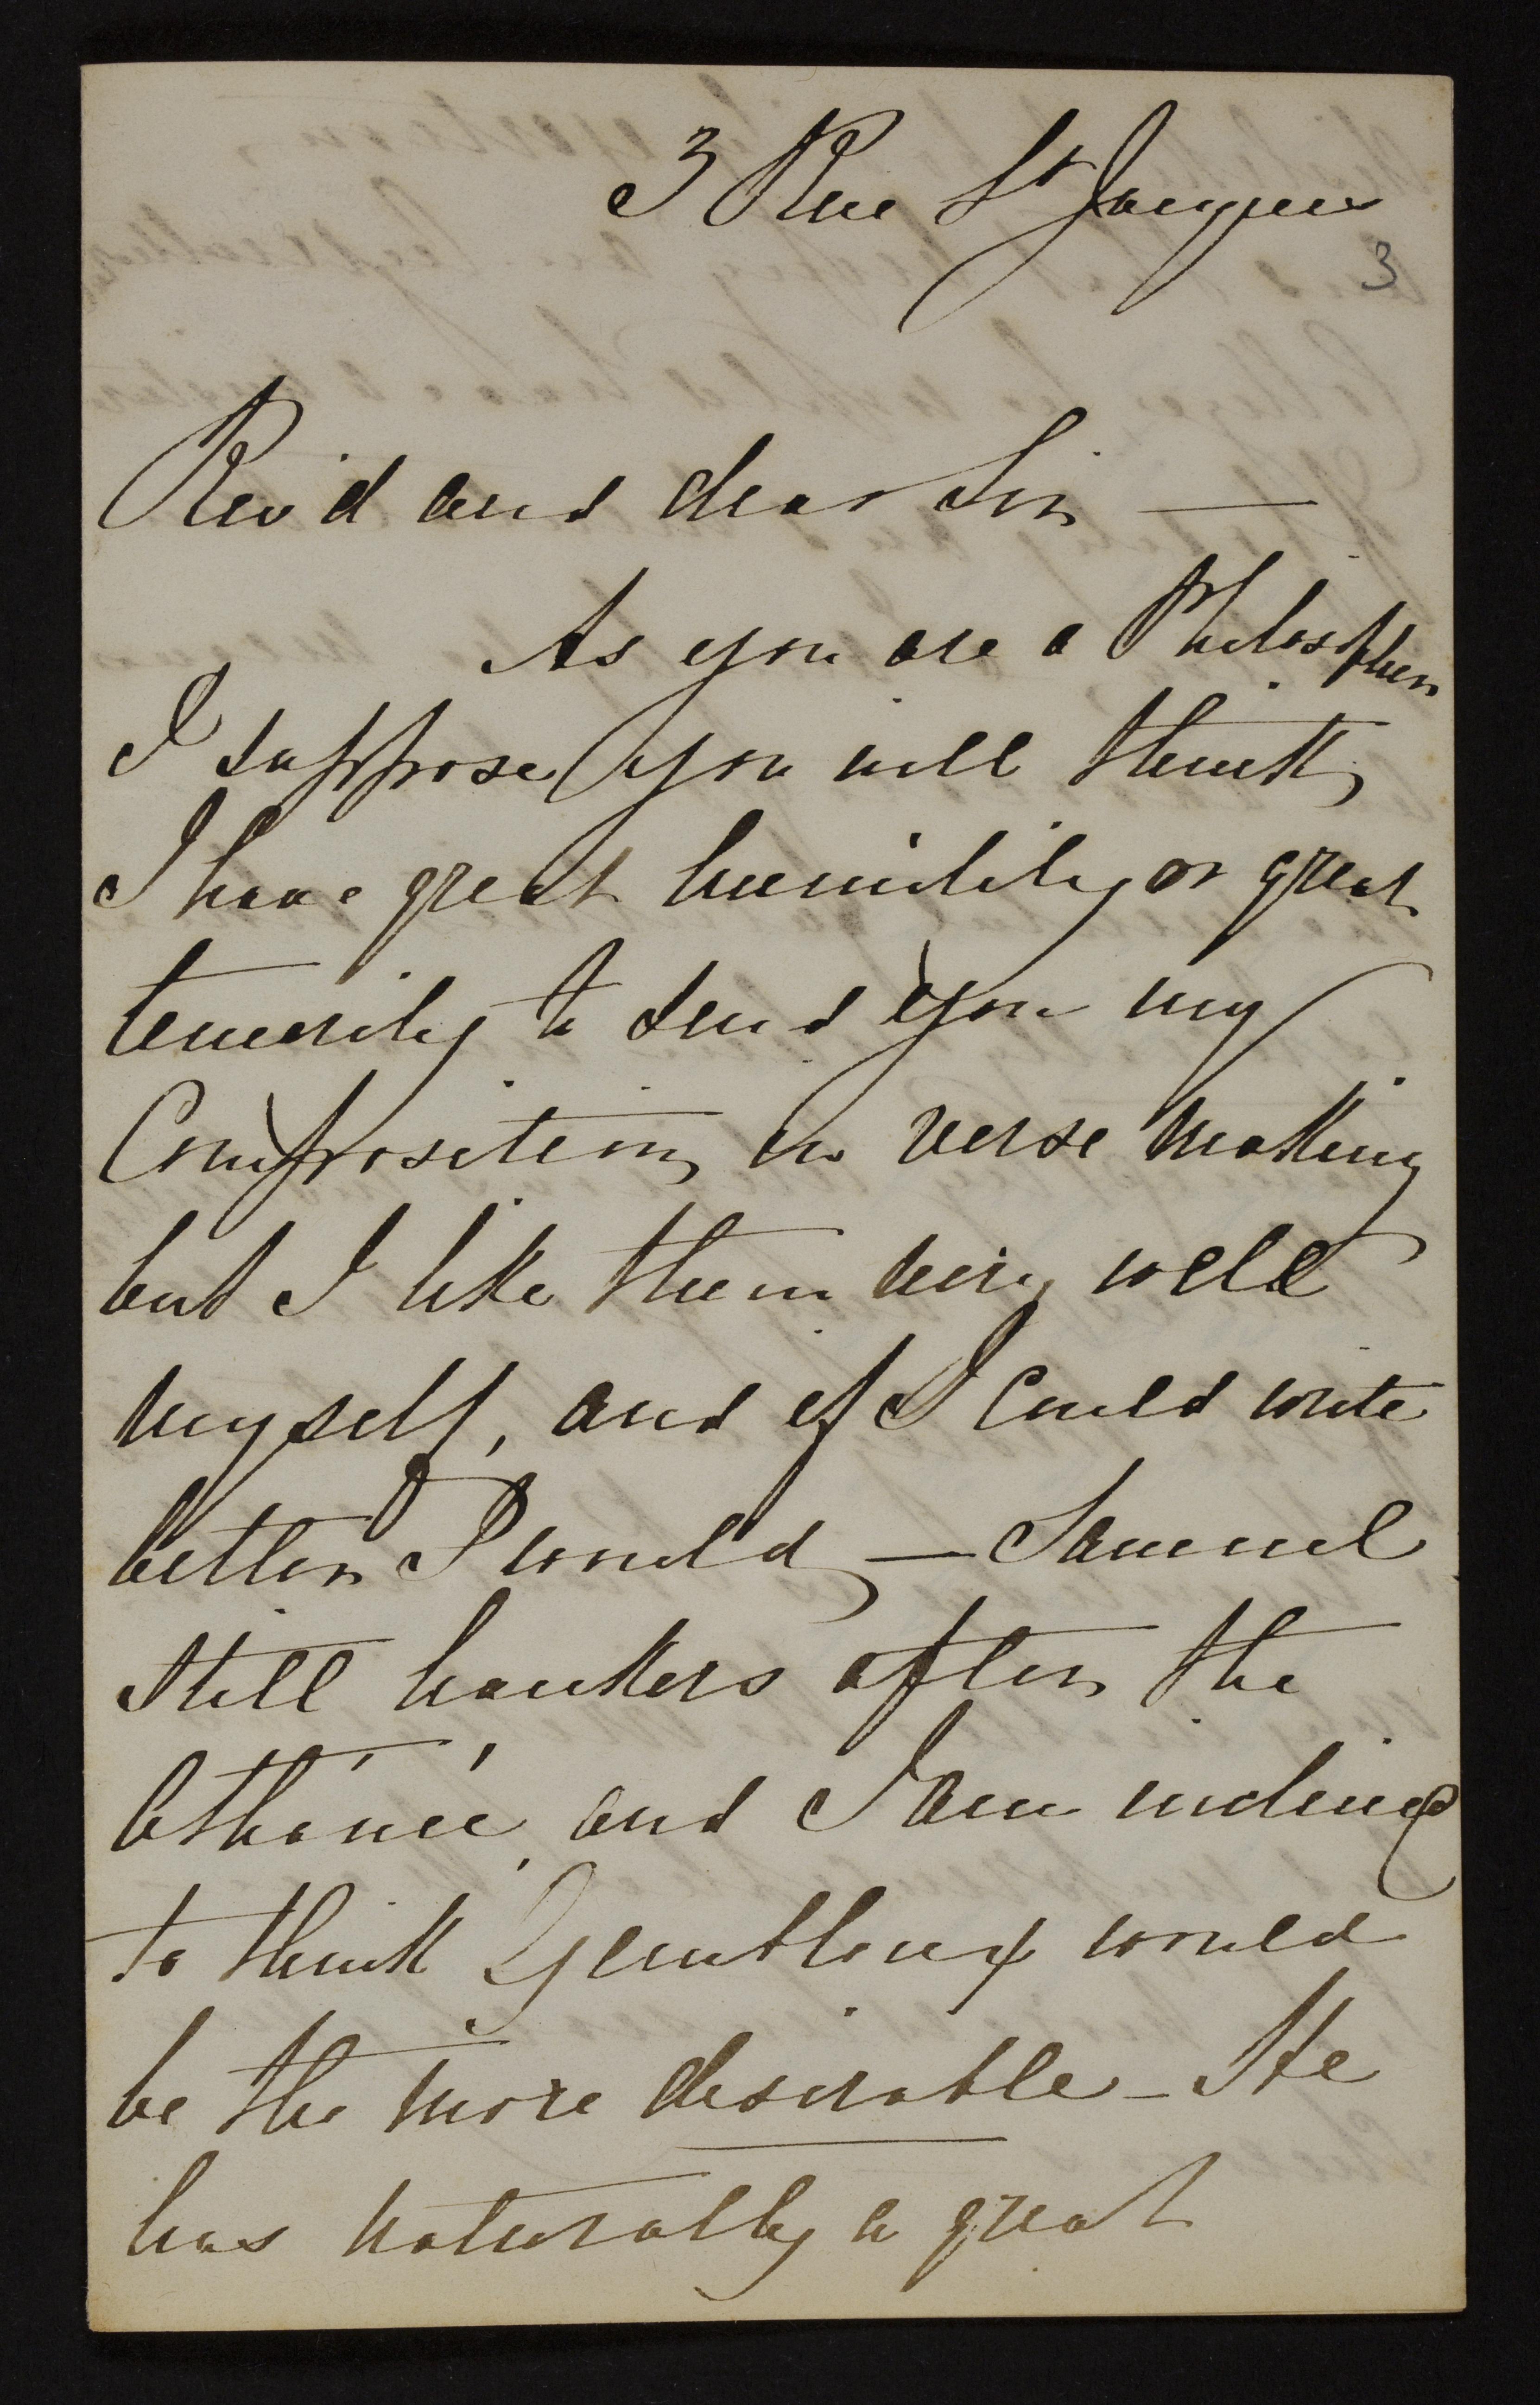 3 Rue St Jacques
3
Rev'd and dear Sir —
As you are a Philosopher
I suppose you will think
I have great humility or great
temerity to send you my
Composition in verse making
but I like them very well
myself, and if I could write
better I would — Samuel
still hankers after the
Athénée, and I am inclined
to think Gembloux would
be the more desirable — He
has naturally a great